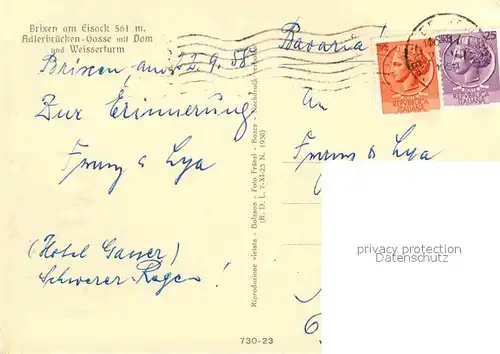 Brixen am Eisack 561 m.
Adlerbrücken-Gasse mit Dom
und Weisserturm
Bavaria!
Brixen, am 22.9.58
Zur Erinnerung
Franz & Lya
(Hotel Gasser)
Schwerer Regen!
An
Franz & Lya
REPUBBLICA
ITALIANA
25
ITALIANA
Riproduzione vietata - Bolzano - Foto Fränzl - Bozen - Nachdruck verboten
(R. D. L. 7-XI-25 N. 1950)
730-23
6
privacy protection
Datenschutz